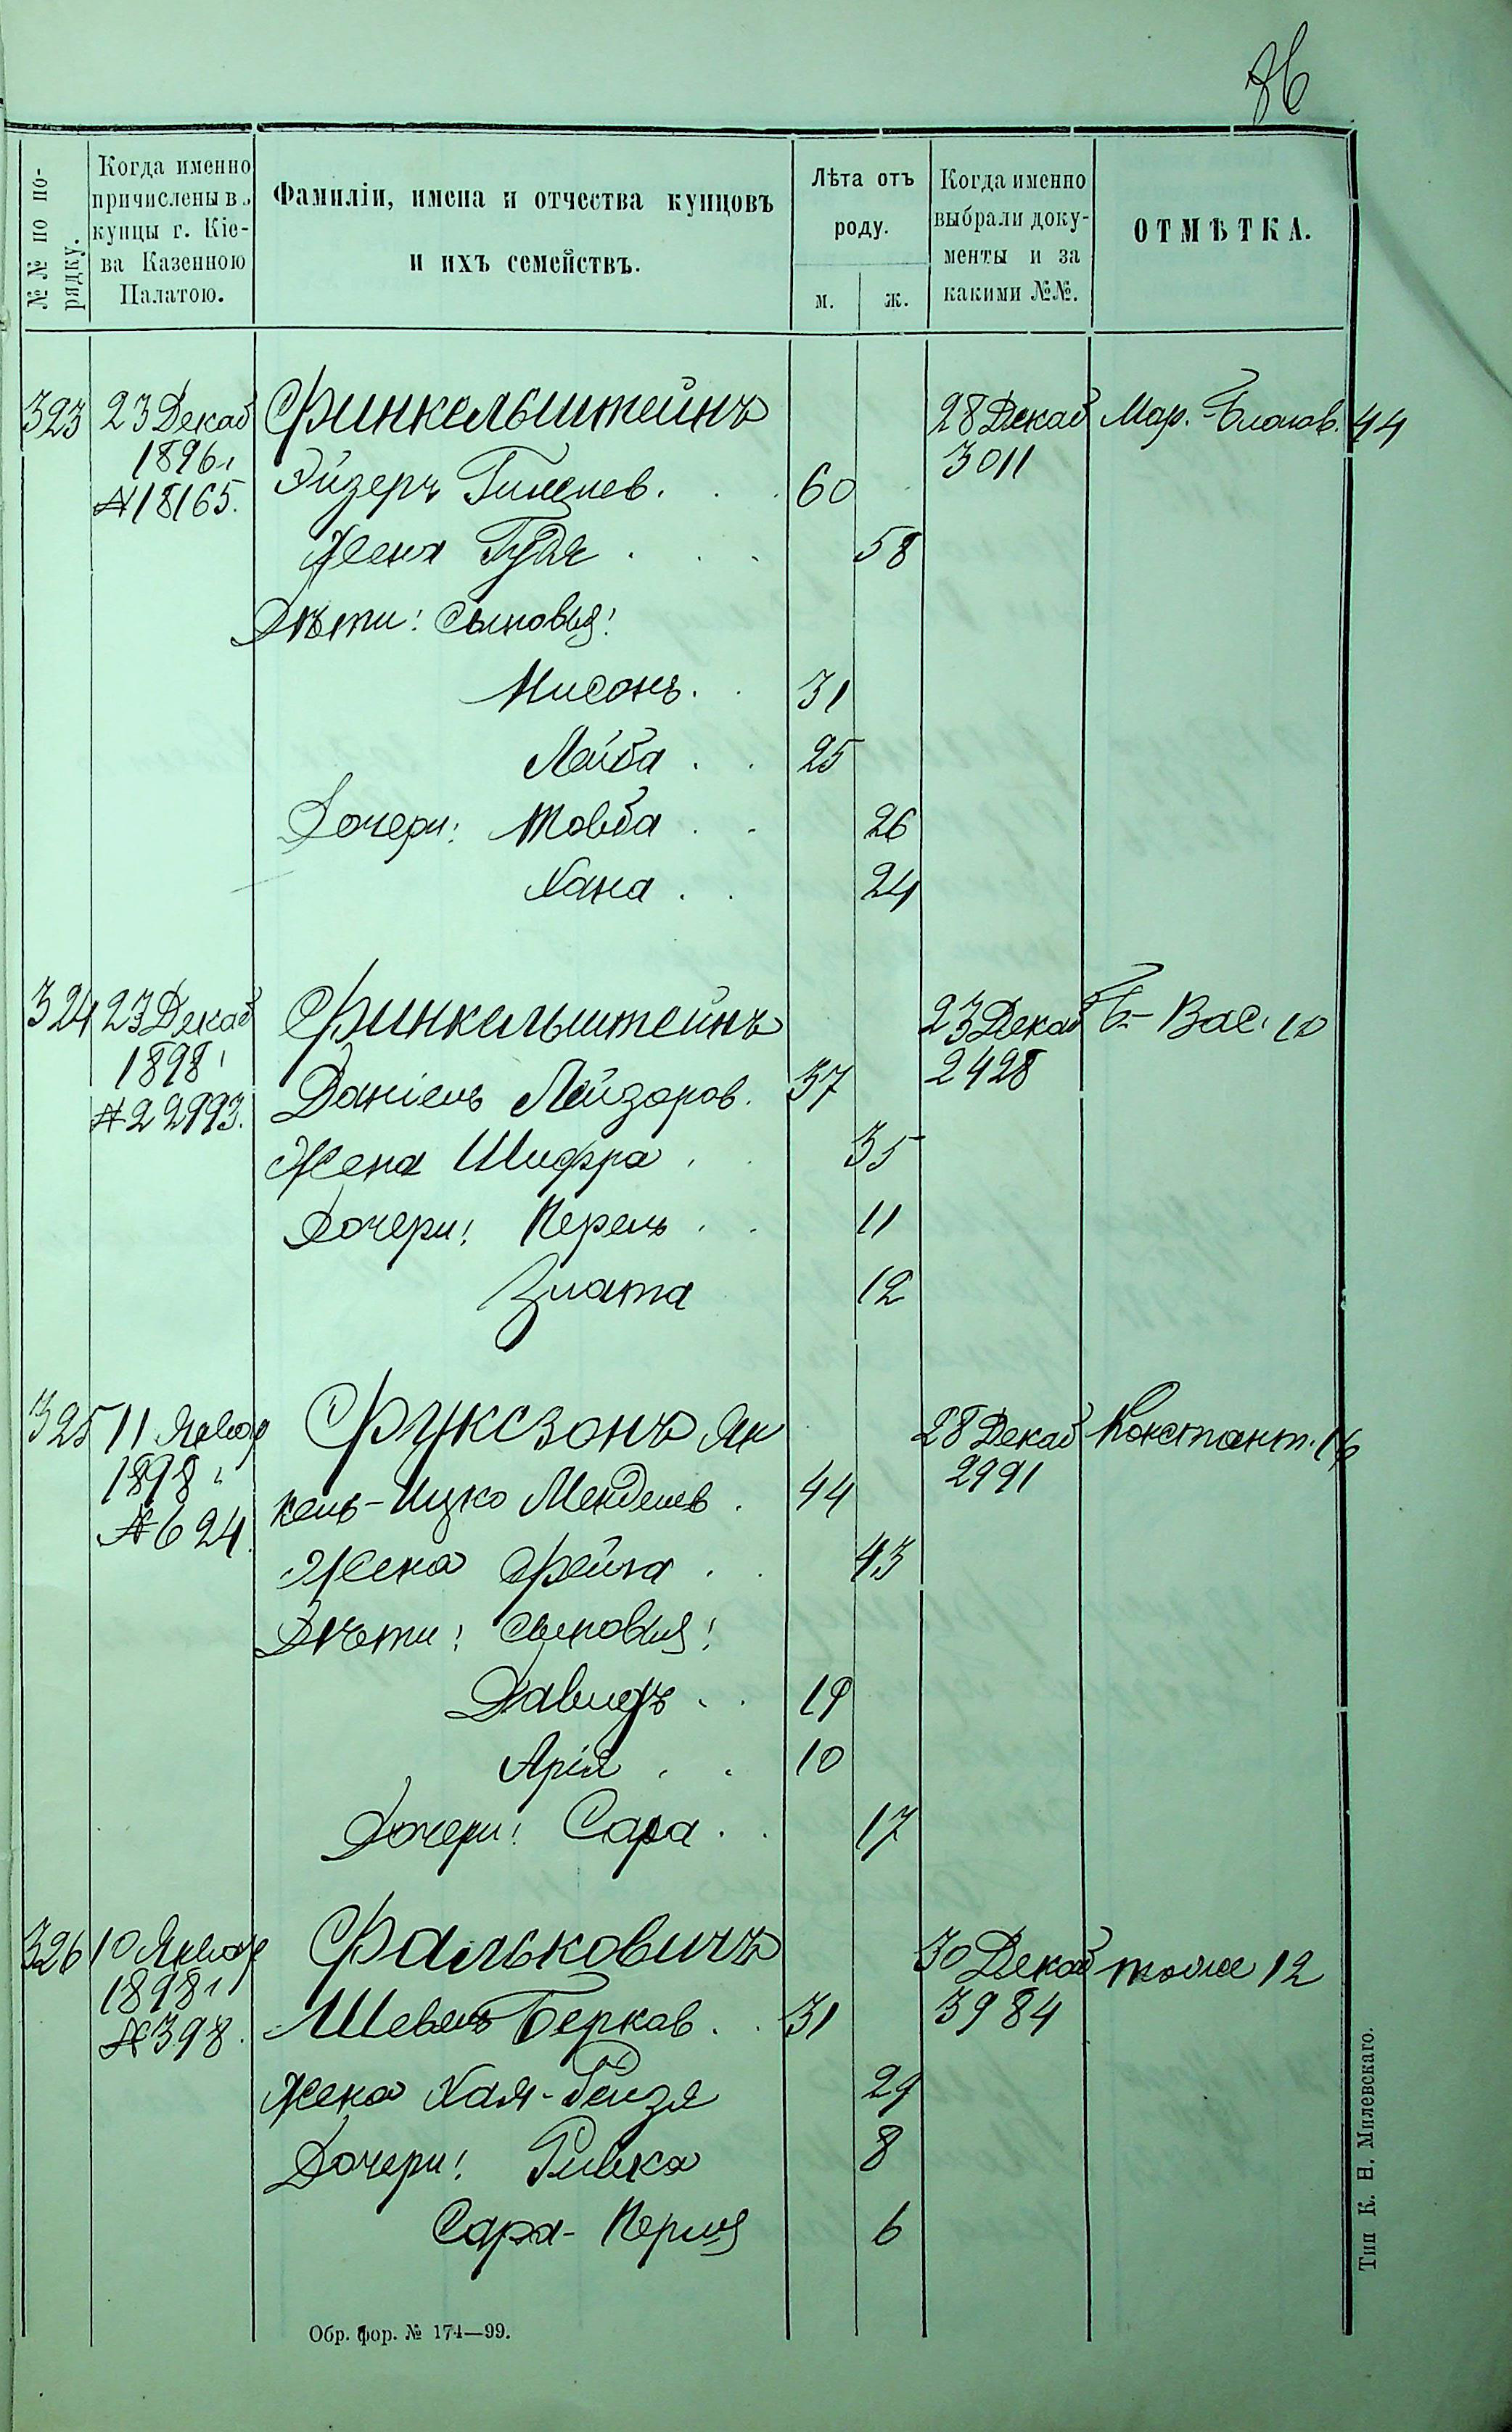 36
№№ по порядку.
Когда именно причислены въ купцы г. Кіева Казенною Палатою.
Фамиліи, имена и отчества купцовъ и ихъ семействъ.
Лѣта отъ роду.
м. ж.
Когда именно выбрали документы и за какими №№.
ОТМѢТКА.
323 23 Декаб Финкельштейнъ 28 Декаб Мар.-Благов. 44
1896 г. 3011
№18165. Эйзеръ . . 60
Жена Гудя . . . 58
Дѣти: Сыновья:
Нисонъ . . 31
Лейба . . 25
Дочери: Товба . . 26
Хана . . 24
324 23 Декаб Финкельштейнъ 23 Декаб Б-Вас. 10
1898 2428
№22993. Даніель Лейзоров. 37
Жена Шифра . . 35
Дочери: Перель . . 11
Злата 12
325 11 Январ Фуксзонъ Ян 28 Декаб Констант. 16
1898 г. 2991
№624. кель-Ицко Менделев . 44
Жена Фейга . . 43
Дѣти: Сыновья:
Давидъ . . 19
Арія . . 10
Дочери: Сара . . 17
326 10 Январ Фальковичъ 30 Декаб тоже 12
1898 г. 3984
№398. Шевель Берков. . 31
Жена Хая-Рейзя 29
Дочери: Ривка 8
Сара-Перля 6
Обр. фор. № 174—99.
Тип К. Н. Милевскаго.